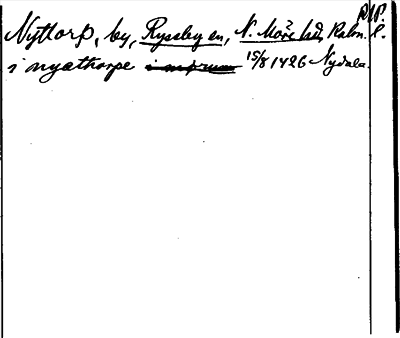 Nyttorp, by, Ryssby sn, N. Möre hd, Kalm. l.
i nyæthorpe 15/8 1426 Nydala.